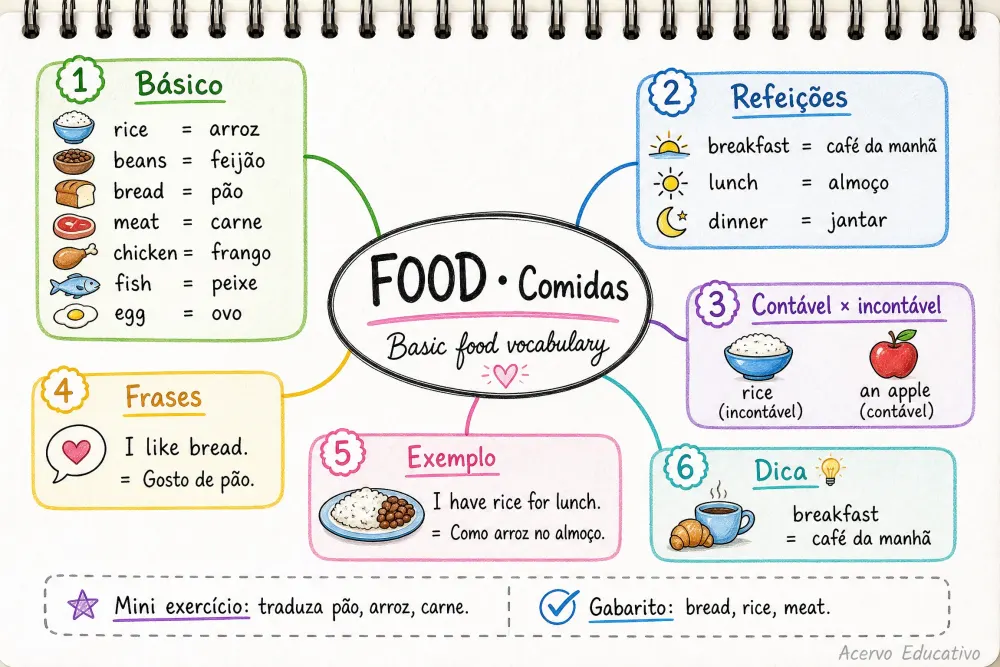 FOOD · Comidas
Basic food vocabulary
1 Básico
rice = arroz
beans = feijão
bread = pão
meat = carne
chicken = frango
fish = peixe
egg = ovo
2 Refeições
breakfast = café da manhã
lunch = almoço
dinner = jantar
3 Contável × incontável
rice
(incontável)
an apple
(contável)
4 Frases
I like bread.
= Gosto de pão.
5 Exemplo
I have rice for lunch.
= Como arroz no almoço.
6 Dica
breakfast
= café da manhã
Mini exercício: traduza pão, arroz, carne.
Gabarito: bread, rice, meat.
Acervo Educativo